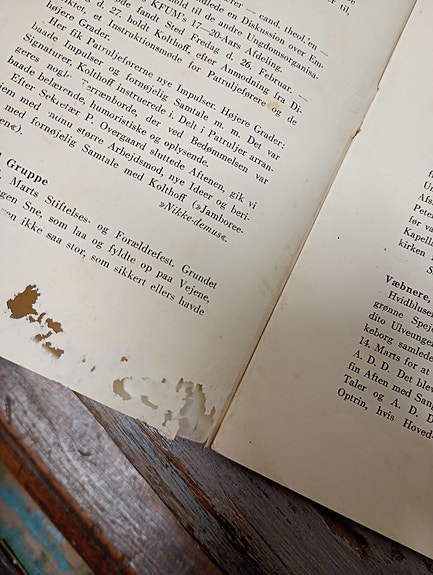 cand. theol. en —
ndledte en Diskussion over Em-
hold til de andre Ungdomsorganisa-
KFUM's 17—20-Aars Afdeling.
de fandt Sted Fredag d. 26. Februar. —
d. 27. holdt Kolthoff, efter Anmodning fra Di-
et Instruktionsmøde for Patruljeførere og de
højere Grader.
Her fik Patruljeførerne nye Impulser. Højere Grader:
baade Impulser og fornøjelig Samtale m. m. Det var
Signaturer, Kolthoff instruerede i, Delt i Patruljer arran-
geres nogle Tærrænborde, der ved Bedømmelsen var
baade belærende, humoristiske og oplysende.
Efter Sekretær P. Overgaard sluttede Aftenen, gik vi
jem med nunu større Arbejdsmod, nye Ideer og beri-
med fornøjelig Samtale med Kolthoff (»Jamboree-
ene).
»Nikke-demuse.
Gruppe
Marts Stiftelses- og Forældrefest. Grundet
gen Sne, som laa og fyldte op paa Vejene,
en ikke saa stor, som sikkert ellers havde
til,
f
U
Afs
Pete
før va
Kapell
kirken
Væbnere,
Hvidbluser
grønne Speje
dito Ulveunge
keborg samlede
14. Marts for at
A. D. D. Det blev
fin Aften med Sang
Taler og A. D. D
Optrin, hvis Hoved-